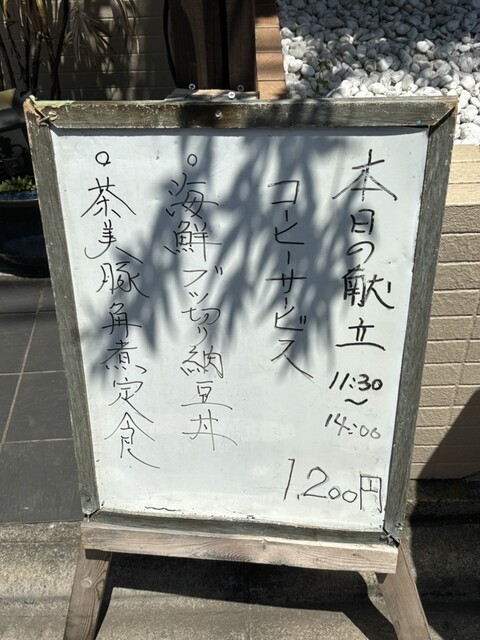 本日の献立
11:30
~
14:00
1,200円
コーヒーサービス
○海鮮ブツ切り納豆丼
○茶美豚角煮定食